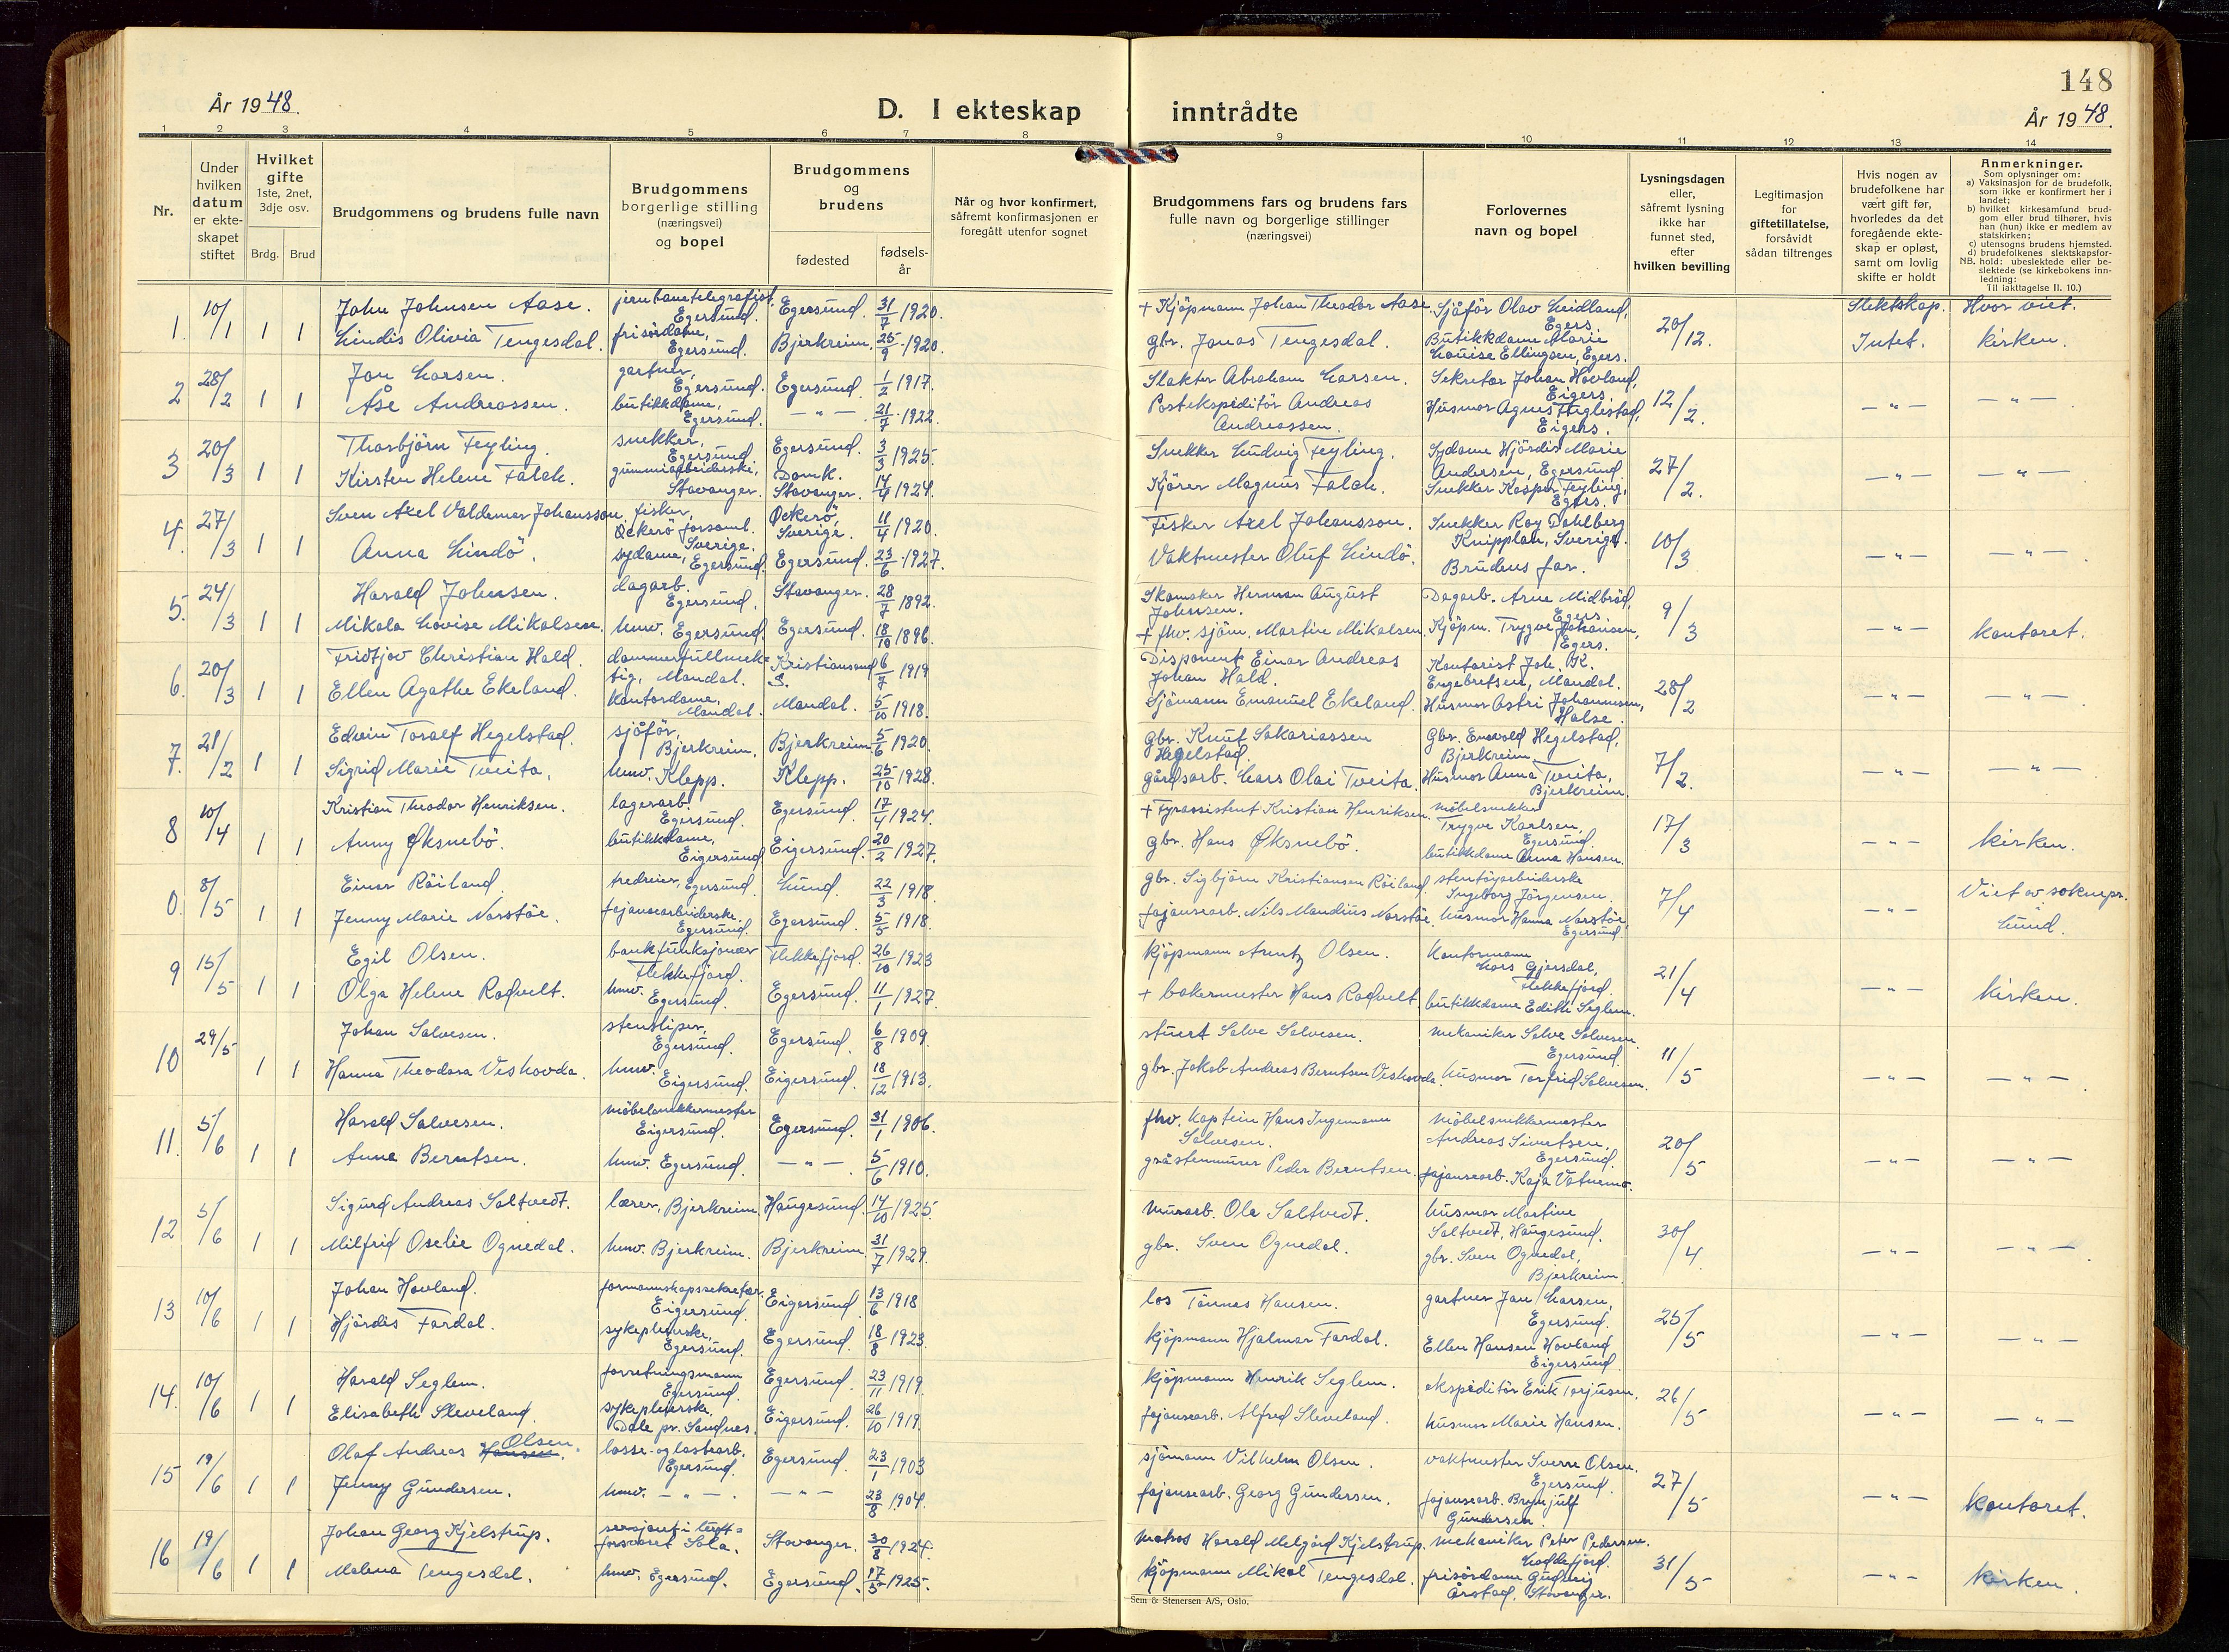 148
År 1948.
D. I ekteskap inntrådte
År 1948.
1 2 3 4 5 6 7 8 9 10 11 12 13 14
Nr.
Under hvilken datum er ekteskapet stiftet
Hvilket gifte 1ste, 2net, 3dje osv.
Brdg. Brud
Brudgommens og brudens fulle navn
Brudgommens borgerlige stilling (næringsvei) og bopel
Brudgommens og brudens
fødested
fødselsår
Når og hvor konfirmert, såfremt konfirmasjonen er foregått utenfor sognet
Brudgommens fars og brudens fars fulle navn og borgerlige stillinger (næringsvei)
Forlovernes navn og bopel
Lysningsdagen eller, såfremt lysning ikke har funnet sted, efter hvilken bevilling
Legitimasjon for giftetillatelse, forsåvidt sådan tiltrenges
Hvis nogen av brudefolkene har vært gift før, hvorledes da det foregående ekteskap er opløst, samt om lovlig skifte er holdt
Anmerkninger.
Som oplysninger om:
a) Vaksinasjon for de brudefolk, som ikke er konfirmert her i landet;
b) hvilket kirkesamfund brudgom eller brud tilhører, hvis han (hun) ikke er medlem av statskirken;
c) utensogns brudens hjemsted.
d) brudefolkenes slektskapsforhold: ubeslektede eller beslektede (se kirkebokens innledning:
NB.
Til iakttagelse II. 10.)
1. 10/1 1 1 John Johnsen Aase. jernbanetelegrafist, Egersund. Egersund. 31/7 1920. + Kjöpmann Johan Theodor Aase. Sjåför Olav Lindland, Egers. 20/12. Slektskap. Hvor viet.
Lindis Olivia Tengesdal. frisördame, Egersund. Bjerkreim. 25/9 1920. gbr. Jonas Tengesdal. Butikkdame Marie Louise Ellingsen, Egers. Intet. kirken.
2 28/2 1 1 Jon Larsen. gartner, Egersund. Egersund. 1/2 1917. Slakter Abraham Larsen. Sekretær Johan Hovland, Eigers. 12/2. — " — — " —
Åse Andreassen. butikkdame, Egersund. — " — 21/7 1922. Postekspeditör Andreas Andreassen. Husmor Agnes Egers.
3 20/3 1 1 Thorbjörn Feyling. snekker, Egersund. Egersund. 3/3 1925. Snekker Ludvig Feyling. Sydame Hjördis Marie Andersen, Egersund. 27/2. — " — — " —
Kirsten Helene Falch. gummiarbeiderske, Stavanger. Domk. Stavanger. 14/4 1924. Kjörer Magnus Falch. Snekker Kasper Feyling, Egers.
4. 27/3 1 1 Sven Axel Valdemar Johansson. fisker, Öckerö forsaml. Sverige. Öckerö, Sverige. 11/4 1920. Fisker Axel Johansson. Snekker Roy Dahlberg Knipplan, Sverige. 10/3 — " — — " —
Anna Lindö. sydame, Egersund. Egersund. 23/6 1927. Vaktmester Oluf Lindö. Brudens far.
5. 24/3 1 1 Harald Johnsen. dagarb. Egersund. Stavanger. 28/7 1892. Skomaker Herman August Johnsen. Dagarb. Arne Midbröd, Egers. 9/3 — " — kontoret.
Mikala Lovise Mikalsen. hmv. Egersund. Egersund. 18/10 1896. + fhv. sjöm. Martin Mikalsen. Kjöpm. Trygve Johansen, Egers.
6. 20/3 1 1 Fridtjov Christian Hald. dommerfullmektig, Mandal. Kristiansand S. 6/7 1919 Disponent Einar Andreas Johan Hald. Kontorist Joh. K. Engebretsen, Mandal. 28/2 — " — — " —
Ellen Agathe Ekeland. kontordame, Mandal. Mandal. 5/10 1918. Sjömann Emanuel Ekeland. Husmor Astri Johannesen, Halse.
7. 21/2 1 1 Edvin Toralf Hegelstad. sjåför, Bjerkreim. Bjerkreim 5/6 1920. Gbr. Knut Sakariassen Hegelstad. Gbr. Enevold Hegelstad, Bjerkreim 7/2. — " — — " —
Sigrid Marie Tveita. hmv. Klepp. Klepp. 25/10 1928. gårdsarb. Lars Olai Tveita. Husmor Anna Tveita, Bjerkreim.
8 10/4 1 1 Kristian Theodor Henriksen. lagerarb. Egersund. Egersund. 17/4 1924. + Fyrassistent Kristian Henriksen. Möbelsnekker Trygve Karlsen, Egersund. 17/3 — " — kirken.
Anny Øksnebö. butikkdame, Eigersund. Eigersund. 20/2 1927. gbr. Hans Øksnebö. butikkdame Anna Hansen.
0. 8/5 1 1 Einar Röiland. tredreier, Egersund. Lund. 22/3 1918. gbr. Sigbjörn Kristiansen Röiland. stentöyarbeiderske Ingeborg Jörgensen. 7/4 — " — Viet av soknepr. Lund.
Jenny Marie Norstöe. fajansearbeiderske. Egersund. Egersund. 5/5 1918. fajansearb. Nils Mandius Norstöe. husmor Hanna Norstöe, Egersund.
9 15/5 1 1 Egil Olsen. bankfunksjonær Flekkefjord. Flekkefjord. 26/10 1923 kjöpmann Arentz Olsen. Kontormann Lars Gjersdal, Flekkefjord. 21/4 — " — kirken.
Olga Helene Rodvelt. hmv. Egersund. Egersund. 11/1 1927. + bakermester Hans Rodvelt. butikkdame Edith Seglem.
10 29/5 1 1 Johan Salvesen. stensliper, Egersund. Egersund. 6/8 1909. stuert Salve Salvesen. mekaniker Salve Salvesen. Egersund. 11/5 — " — — " —
Hanna Theodora Veshovda. hmv. Eigersund. Eigersund. 18/12 1913. gbr. Jakob Andreas Berntsen Veshovda. husmor Torfrid Salvesen.
11. 5/6 1 1 Harald Salvesen. möbelsnikkermester Eigersund. Egersund. 31/1 1906. fhv. kaptein Hans Ingemann Salvesen. möbelsnikkermester Andreas Sivertsen, Egersund. 20/5 — " — — " —
Anna Berntsen. hmv. Egersund. — " — 5/6 1910. gråstenmurer Peder Berntsen. fajansearb. Kaja Vatnemo.
12 5/6 1 1 Sigurd Andreas Saltvedt. lærer, Bjerkreim. Haugesund. 14/10 1925. murarb. Ola Saltvedt. husmor Martine Saltvedt, Haugesund. 30/4. — " — — " —
Milfrid Oselie Ognedal. hmv. Bjerkreim. Bjerkreim. 31/7 1929. gbr. Sven Ognedal. gbr. Sven Ognedal, Bjerkreim.
13 10/6 1 1 Johan Hovland. formannskapssekretær. Eigersund. Eigersund. 13/6 1918 los Tönnes Hansen. gartner Jan Larsen, Egersund. 25/5 — " — — " —
Hjördis Fardal. sykepleierske, Egersund. Egersund. 18/8 1923. kjöpmann Hjalmar Fardal. Ellen Hansen Hovland Eigersund.
14. 10/6 1 1 Harald Seglem. forretningsmann Egersund. Egersund. 23/11 1919. kjöpmann Henrik Seglem. ekspeditör Erik Torjusen. 26/5 — " — — " —
Elisabeth Sleveland. sykepleierske, Dale pr. Sandnes. Eigersund. 26/10 1919. fajansearb. Alfred Sleveland. husmor Marie Hansen.
15 19/6 1 1 Olaf Andreas Hansen. Olsen. losse- og lastearb. Egersund. Egersund. 23/1 1903 sjömann Vilhelm Olsen. vaktmester Sverre Olsen. Egersund. 27/5 — " — kontoret.
Jenny Gundersen. hmv. — " — — " — 23/8 1904. fajansearb. Georg Gundersen. fajansearb. Brynjulf Gundersen.
16 19/6 1 1 Johan Georg Kjelstrup. sersjant i luftforsvaret Sola. Stavanger. 30/8 1924. matros Harald Melgård Kjelstrup. mekaniker Peter Pedersen. Loddefjord. 31/5 — " — kirken.
Malena Tengesdal. hmv. Egersund. Egersund. 17/5 1925. kjöpmann Mikal Tengesdal. frisördame Gudveig Årstad, Stavanger.
Sem & Stenersen A/S, Oslo.